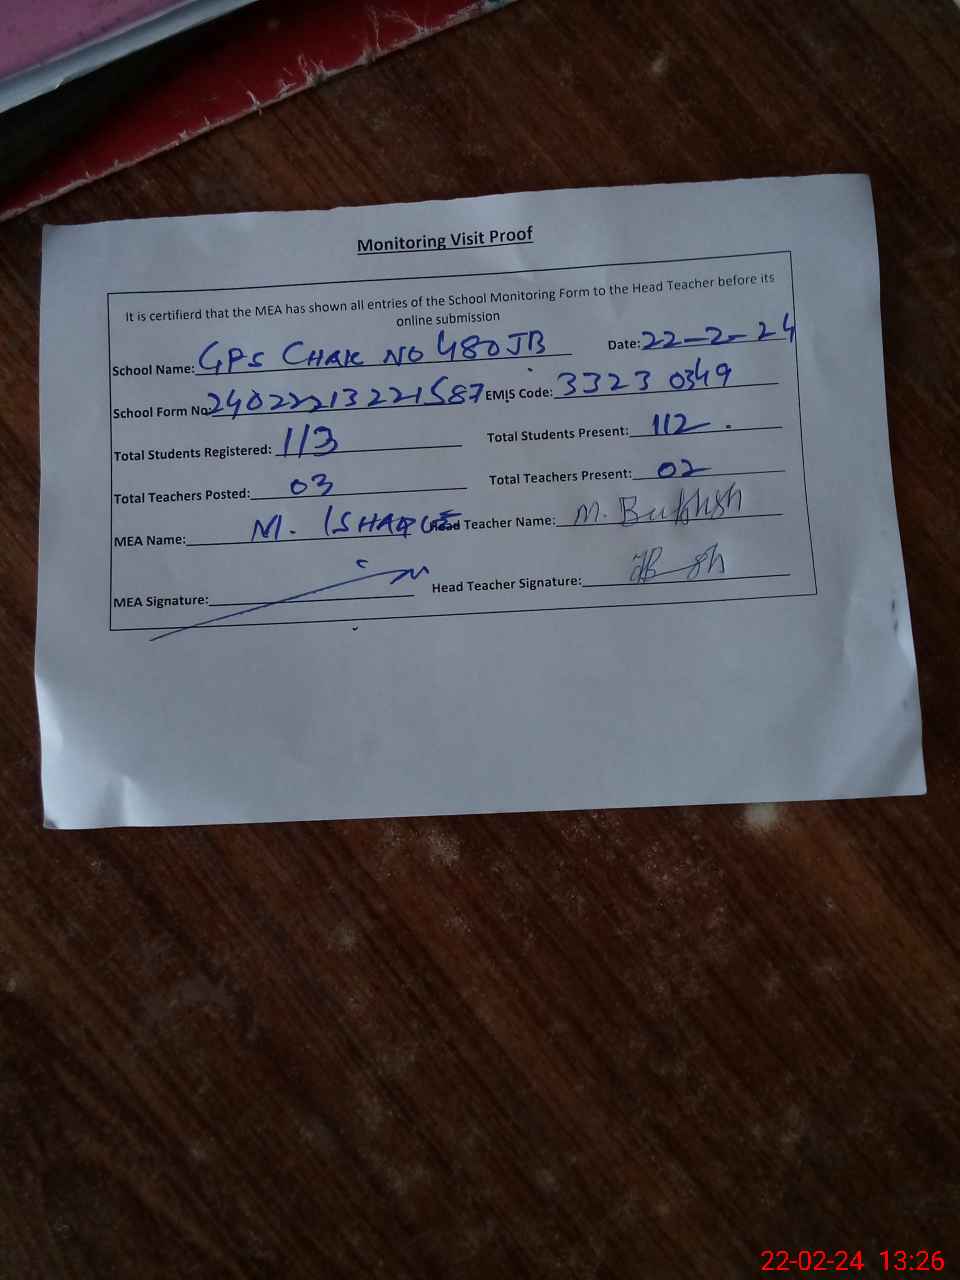 Monitoring Visit Proof
It is certifierd that the MEA has shown all entries of the School Monitoring Form to the Head Teacher before its
online submission
School Name: GPS CHAK NO 480JB Date: 22-2-24
School Form No: 24022213221587 EMIS Code: 3323 0349
Total Students Registered: 113 Total Students Present: 112.
Total Teachers Posted: 03 Total Teachers Present: 02
MEA Name: M. ISHAQUE Head Teacher Name: M. Bukhsh
MEA Signature: Head Teacher Signature:
22-02-24 13:26